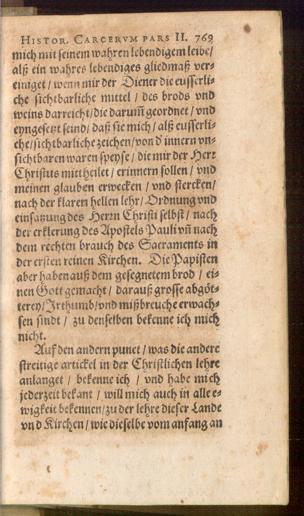 HISTOR. CARCERVM PARS II. 769
mich mit seinem wahren lebendigem leibe/
alß ein wahres lebendiges gliedmaß ver-
einiget / wenn mir der Diener die eusserli-
che sichtbarliche mittel / des brods vnd
weins darreicht / die darum̃ geordnet / vnd
eyngesetzt seind / daß sie mich / alß eusserli-
che / sichtbarliche zeichen / von d' innern vn-
sichtbaren waren speyse / die mir der Herr
Christus mittheilet / erinnern sollen / vnd
meinen glauben erwecken / vnd stercken /
nach der klaren hellen lehr / Ordnung vnd
einsatzung des Herrn Christi selbst / nach
der erklerung des Apostels Pauli vñ nach
dem rechten brauch des Sacraments in
der ersten reinen Kirchen. Die Papisten
aber haben auß dem gesegnetem brod / ei-
nen Gott gemacht / darauß grosse abgöt-
terey / Irthumb / vnd mißbreuche erwach-
sen sindt / zu denselben bekenne ich mich
nicht.
Auf den andern punct / was die andere
streitige artickel in der Christlichen lehre
anlanget / bekenne ich / vnd habe mich
jederzeit bekant / will mich auch in alle e-
wigkeit bekennen / zu der lehre dieser Lande
vnd Kirchen / wie dieselbe vom anfang an